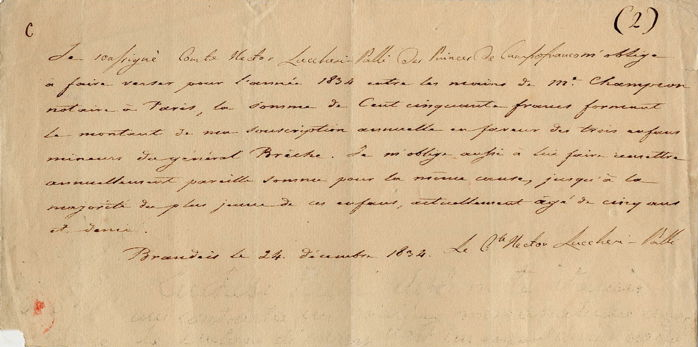 C
(2)
Je soussigné Comte Hector Lucchesi Palli des Princes de Campofranco m'oblige
à faire verser pour l'année 1834 entre les mains de Mr. Champion
notaire à Paris, la somme de Cent cinquante francs formant
le montant de ma souscription annuelle en faveur des trois enfans
mineurs du général Brèche. Je m'oblige aussi à lui faire remettre
annuellement pareille somme pour la même cause, jusqu'à la
majorité du plus jeune de ces enfans, actuellement âgé de cinq ans
et demie.
Brandeis le 24. décembre 1834. Le Cte Hector Lucchesi-Palli